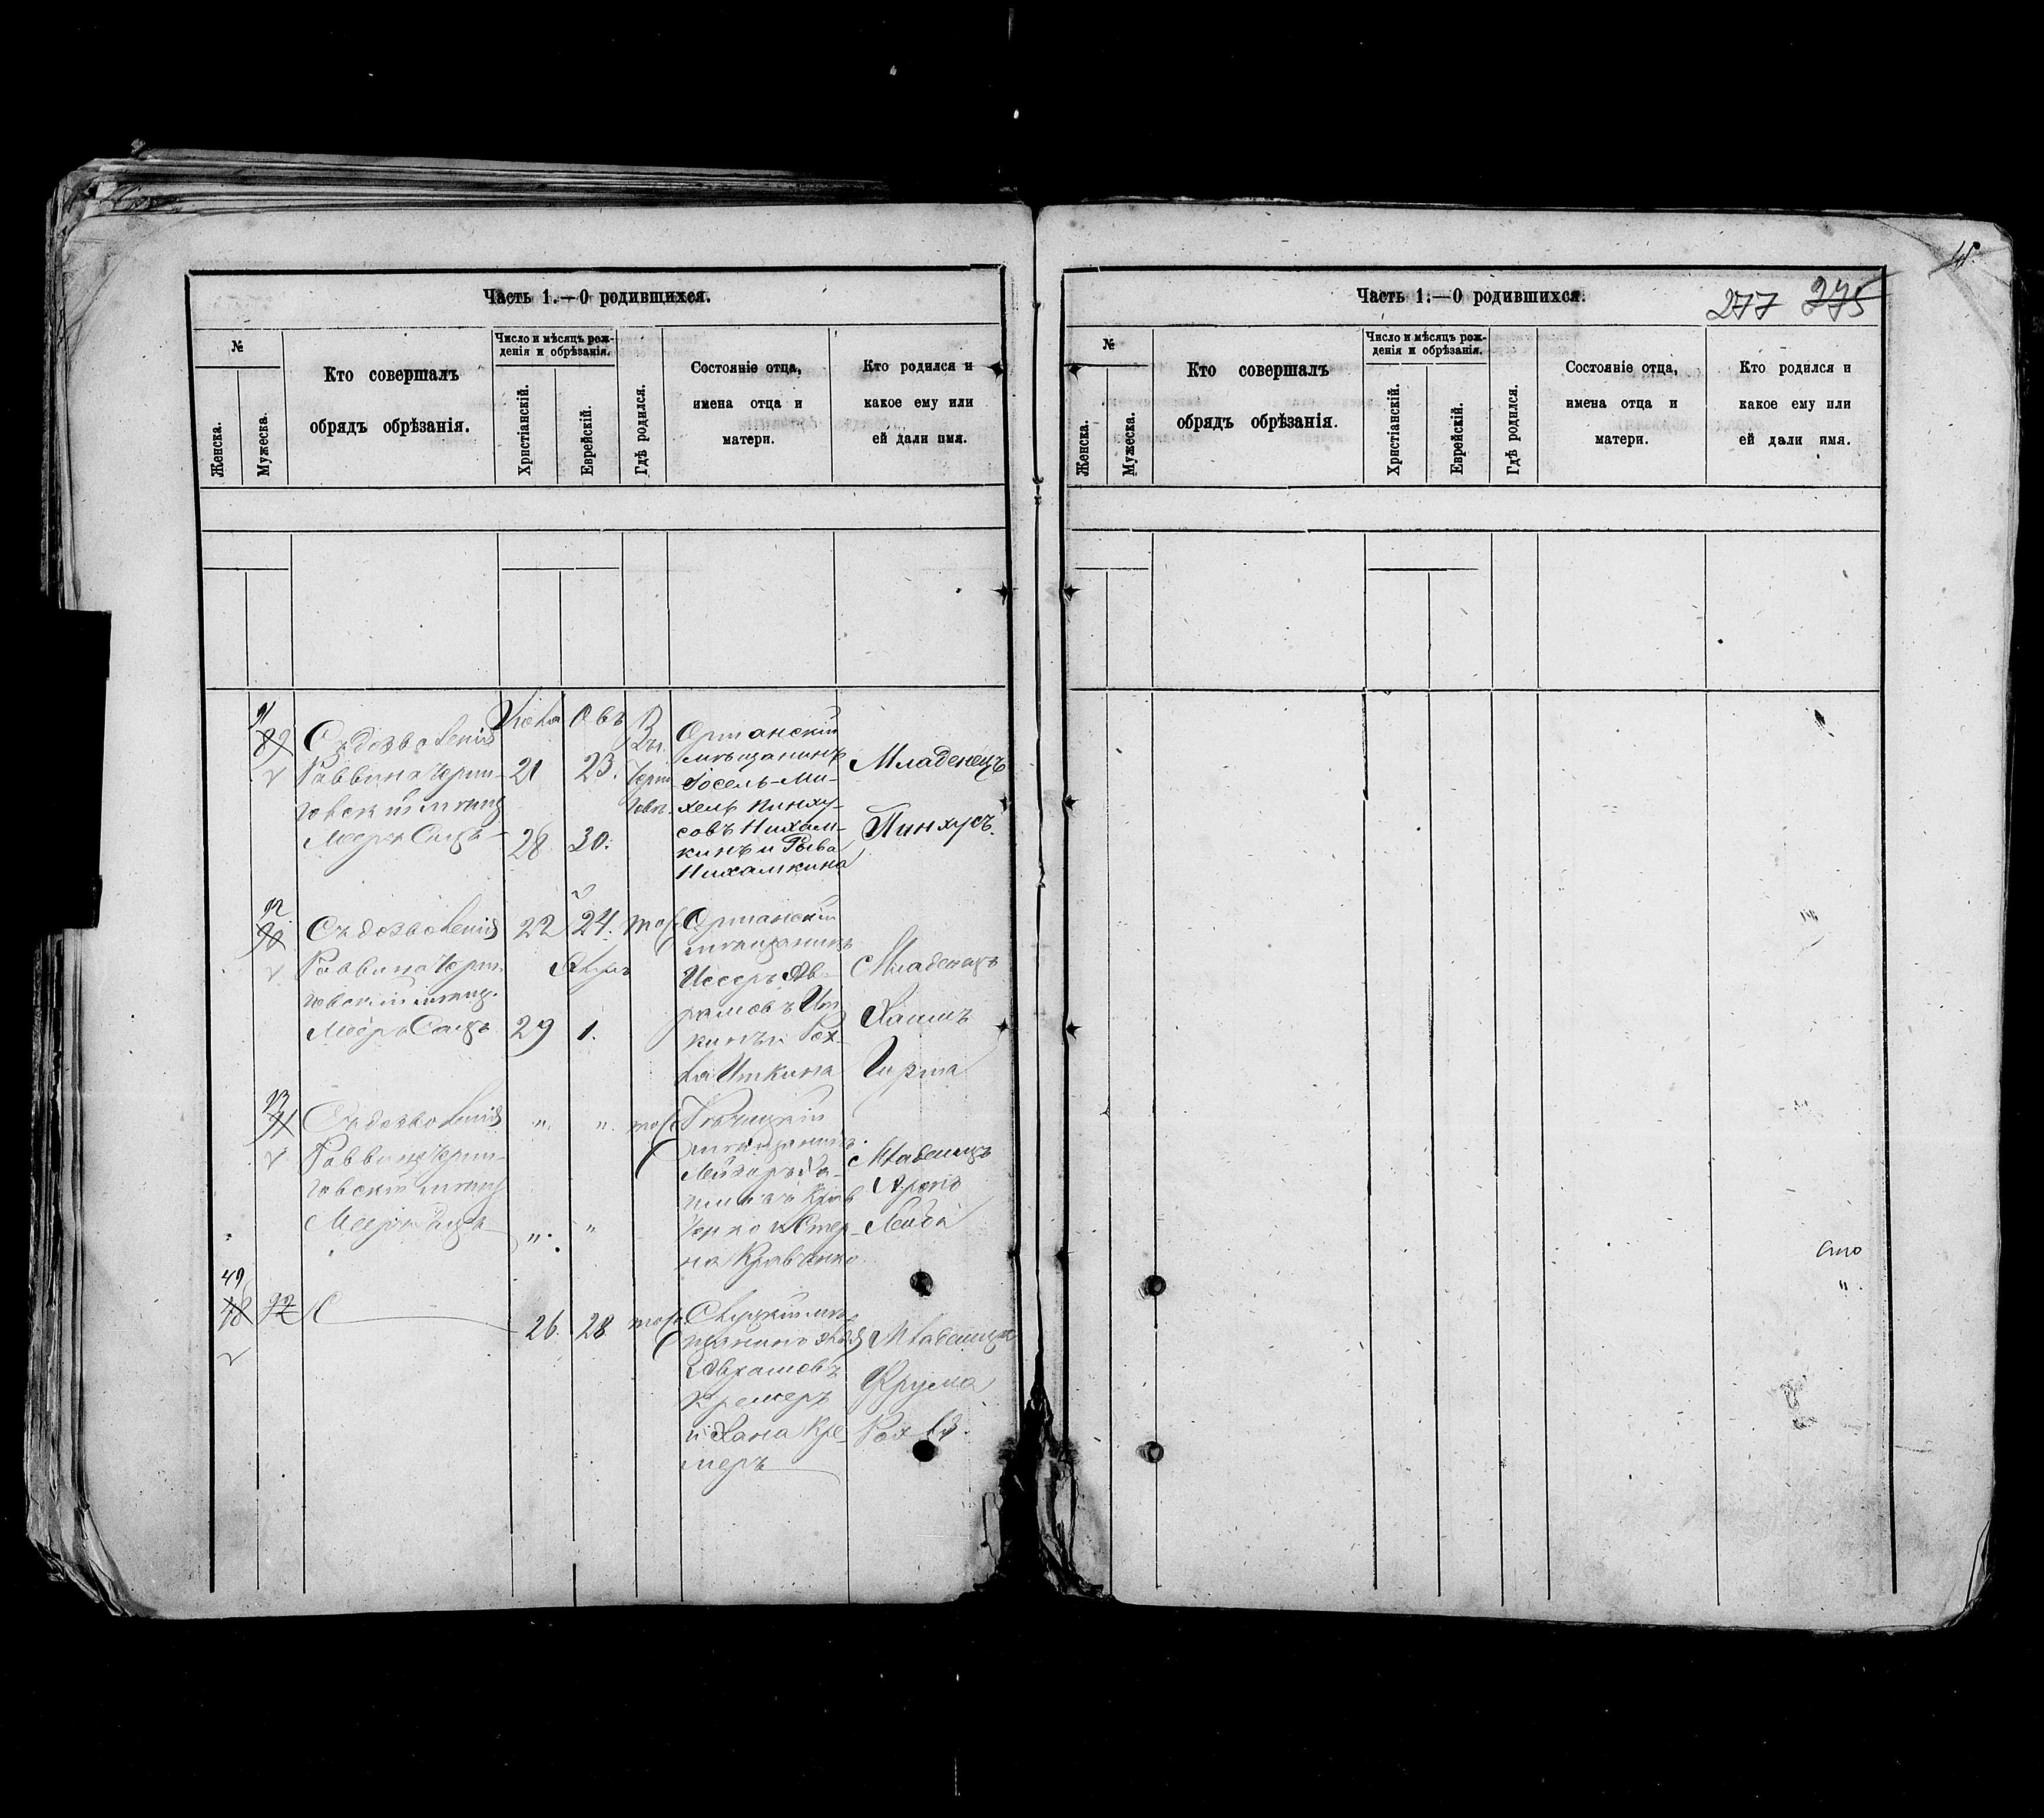 Часть 1.—О родившихся.
№
Женска.
Мужеска.
Кто совершалъ
обрядъ обрѣзанія.
Число и мѣсяцъ рож-
денія и обрѣзанія.
Христіанскій.
Еврейскій.
Гдѣ родился.
Состояніе отца,
имена отца и
матери.
Кто родился и
какое ему или
ей дали имя.
91
89
Съ дозволенія
Раввина Черни-
говскій мѣщ
Мееръ
Іюля
21
28
Овъ
23.
30.
Въ
Черни
говѣ.
мѣщанинъ
Іосель-Ми-
хель Пинху-
совъ Нихам-
кинъ и Рыва
Нихамкина
Младенецъ
Пинхусъ.
92
90
Съ дозволенія
Раввина Черни-
говскій мѣщ.
Мееръ
22
29
24.
1.
тоже
мѣщанинъ
Иссеръ Ав-
рамовъ Ит
кинъ и Рох-
ля Иткина
Младенецъ
Хаимъ
Гирша
93
91
Съ дозволенія
Раввина Черни-
говскій мѣщ
Мееръ
"
"
"
"
тоже
мѣщанинъ
Лейзеръ
Крав
ченко и Стер-
на Кравченко
Младенецъ
Аронъ
Лейба
49
48
92
26.
28
тоже
Абрамовъ
Кремеръ
и Хана Кре-
меръ
Младеница
Фрума
Рохля.
Часть 1.—О родившихся.
277
275
№
Женска.
Мужеска.
Кто совершалъ
обрядъ обрѣзанія.
Число и мѣсяцъ рож-
денія и обрѣзанія.
Христіанскій.
Еврейскій.
Гдѣ родился.
Состояніе отца,
имена отца и
матери.
Кто родился и
какое ему или
ей дали имя.